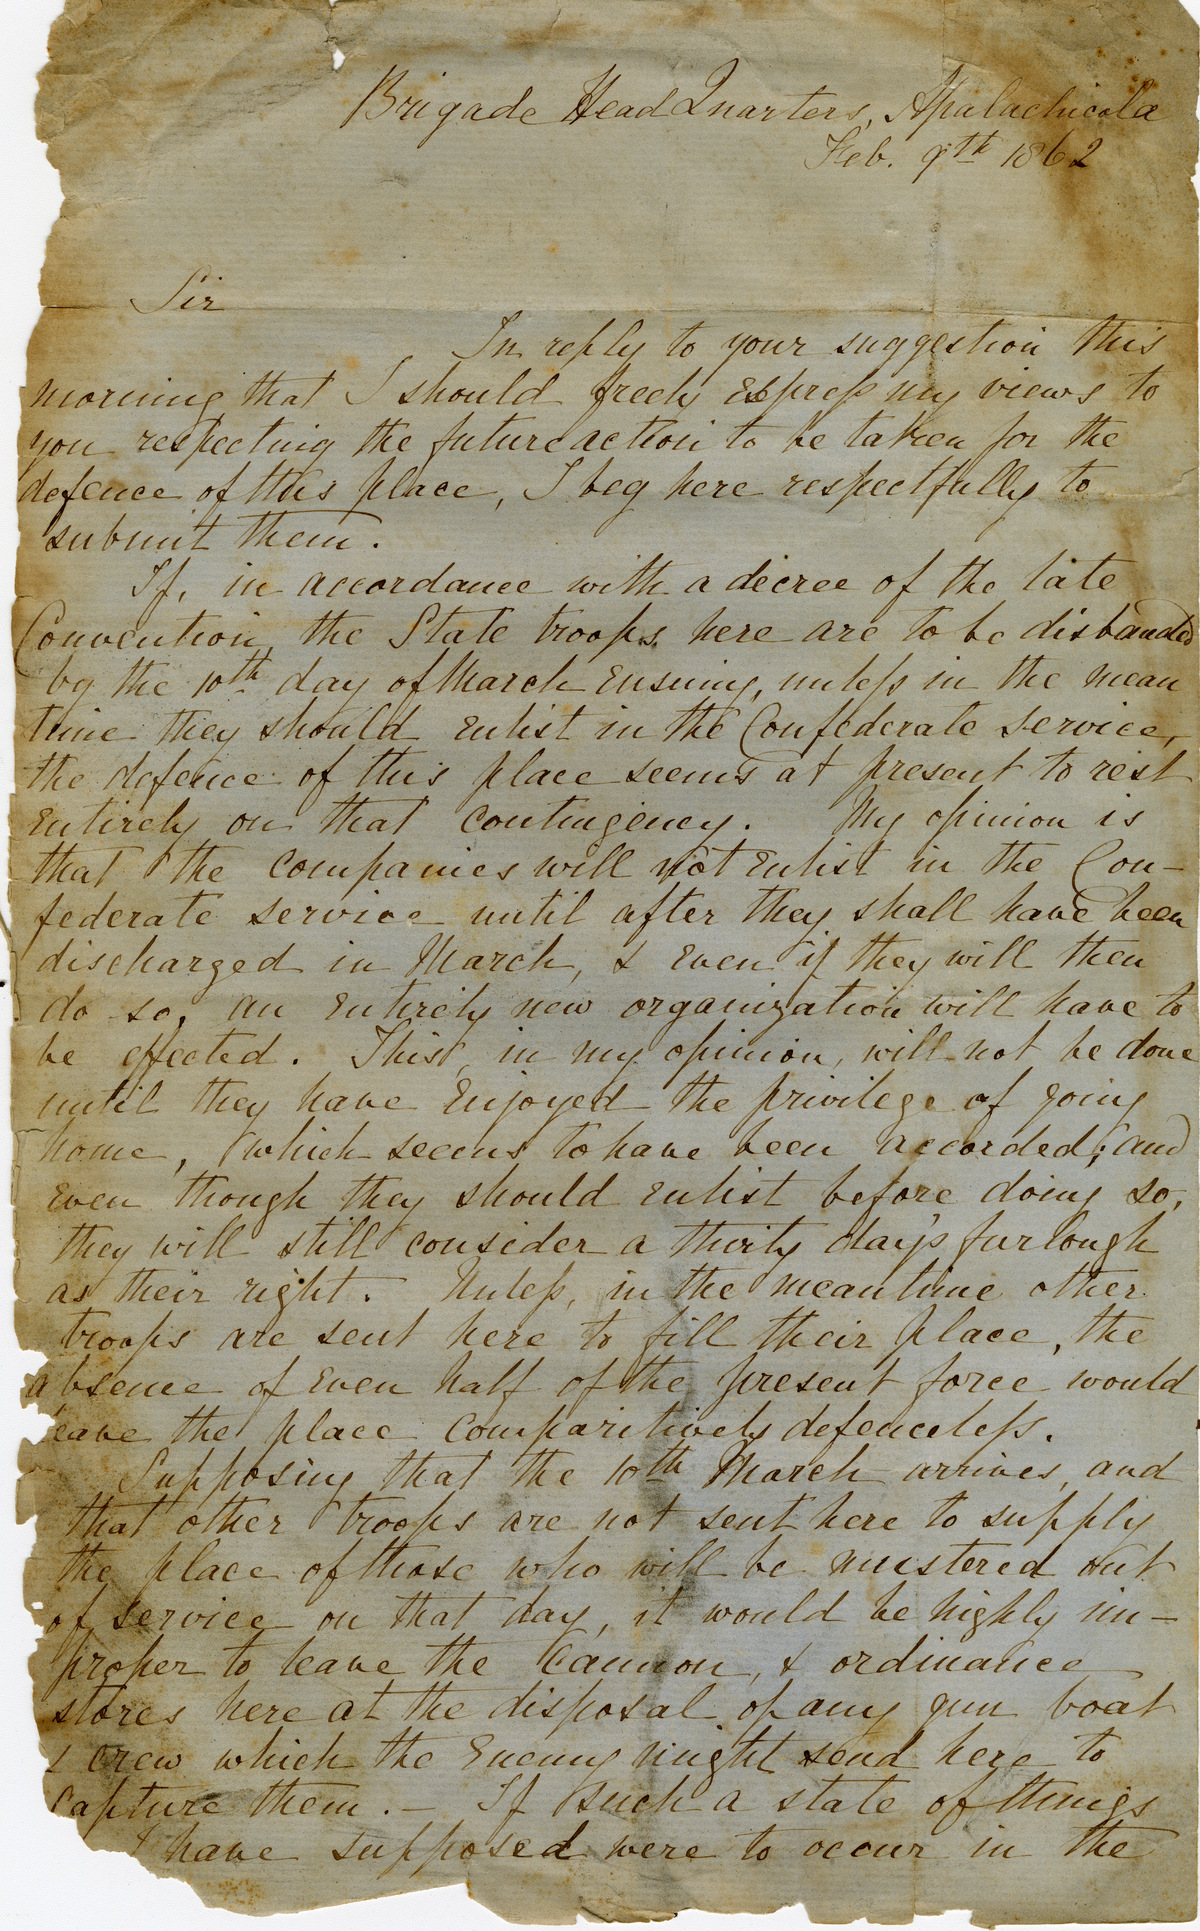 Brigade Head Quarters, Apalachicola
Feb. 9th 1862
Sir
In reply to your suggestion this
morning that I should freely express my views to
you respecting the future action to be taken for the
defence of this place, I beg here respectfully to
submit them.
If, in accordance with a decree of the late
Convention, the State troops here are to be disbanded
by the 10th day of March ensuing, unless in the mean
time they should enlist in the Confederate service,
the defence of this place seems at present to rest
entirely on that contingency. My opinion is
that the companies will not enlist in the Con-
federate service until after they shall have been
discharged in March, & even if they will then
do so, an entirely new organization will have to
be effected. This, in my opinion, will not be done
until they have enjoyed the privilege of going
home, (which seems to have been accorded; and
even though they should enlist before doing so,
they will still consider a thirty day's furlough
as their right. Unless, in the meantime other
troops are sent here to fill their place, the
absence of even half of the present force would
leave the place comparitively defenceless.
Supposing that the 10th March arrives, and
that other troops are not sent here to supply
the place of those who will be mustered out
of service on that day, it would be highly im-
proper to leave the cannon, & ordinance
stores here at the disposal of any gun boat
& crew which the enemy might send here to
capture them. - If such a state of things
I have supposed were to occur in the